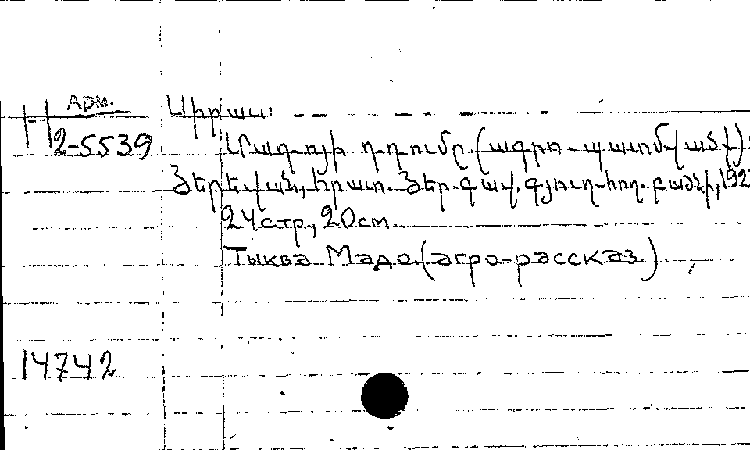 Арм.
2-5539
Սիրաս
Մադոյի դդումը (ագրո-պատմվածք)
Յերեվան, հրատ. Յեր. գավ. գյուղ. հող. բաժնի, 192
24стр, 20см.
Тыква Мадо. (агро-рассказ)
14742